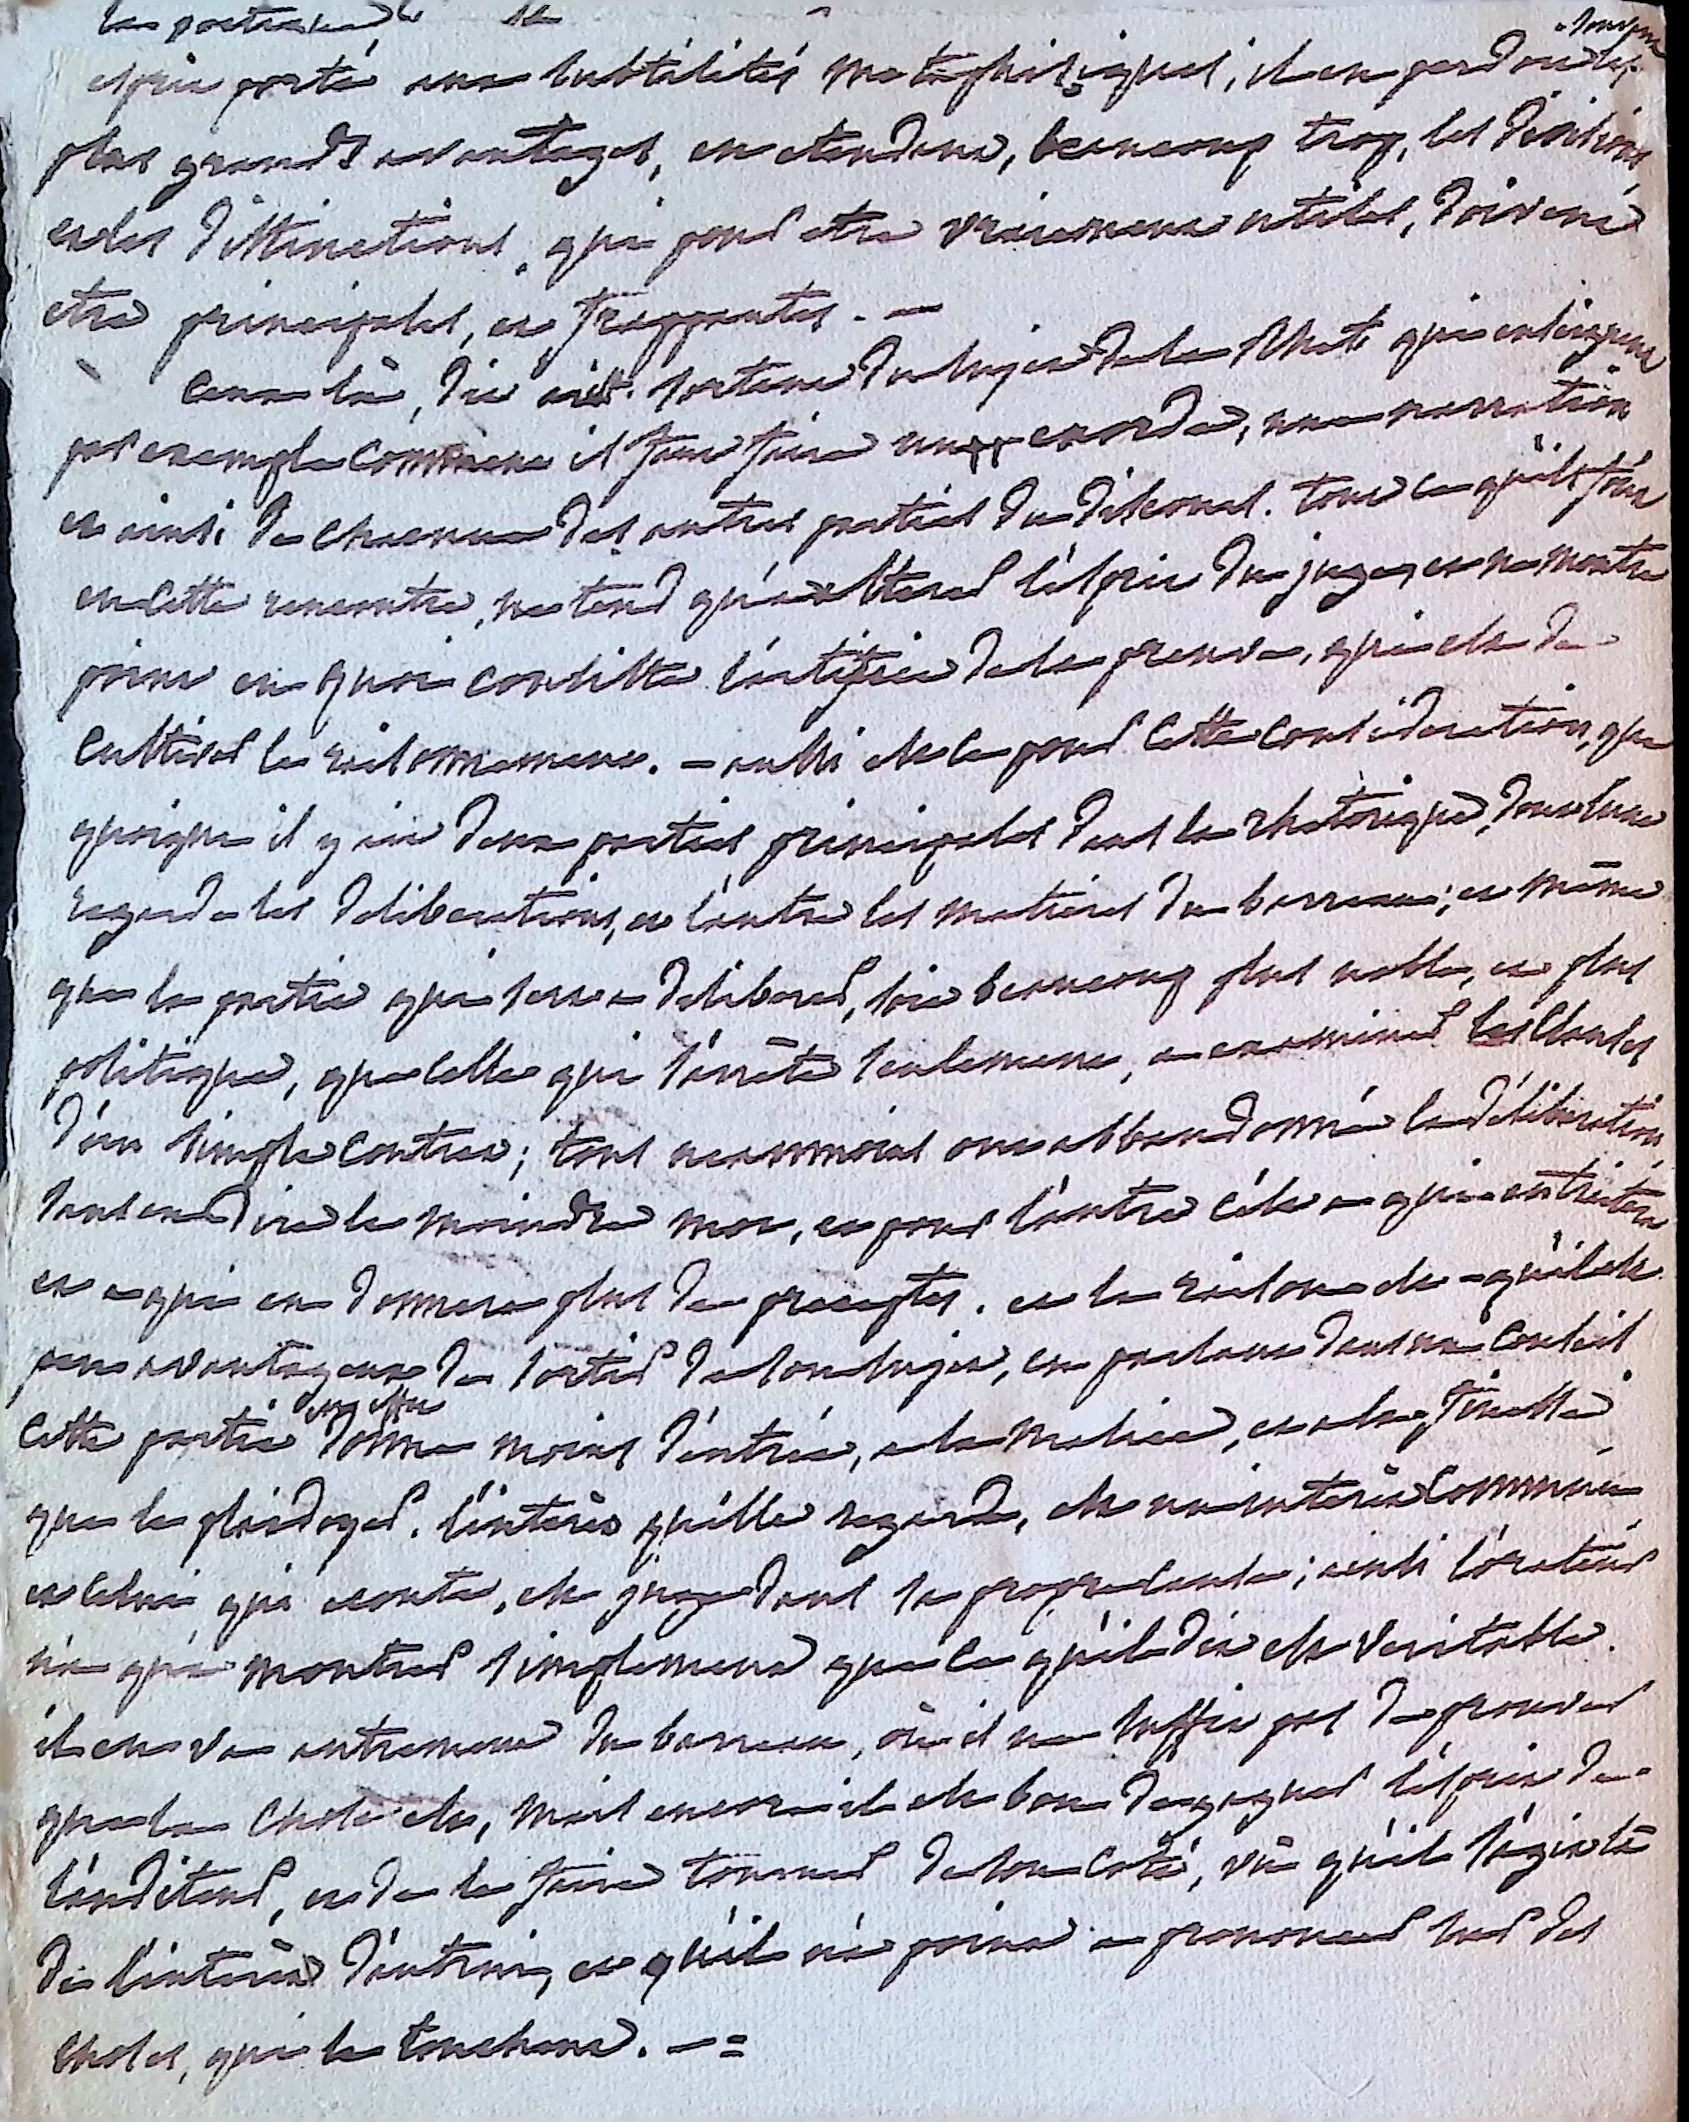 esprit porté aux subtilités metaphisiques, il en perdoit les
plus grands avantages, en etendant, beaucoup trop, les divisions
et les distinctions, qui pour etre vraiement utiles, doivent
etre principales, et frappantes. —
Ceux là, dit arist. sortent du sujet de la Rhet. qui enseignent
par exemple comment il faut faire un exorde, une narration
et ainsi de chacune des autres parties du discours. tout ce qu'ils font
en cette rencontre, ne tend qu'a alterer l'esprit du juge, et ne montre
point en quoi consiste l'artifice de la preuve, qui est de
cultiver le raisonnement. — aussi est ce pour cette consideration, que
quoique il y ait deux parties principales dans la rhetorique, dont l'une
regarde les deliberations, et l'autre les matieres du barreau; et même
que la partie qui sert a deliberer, soit beaucoup plus noble, et plus
politique, que celle qui s'arrête seulement, a examiner les clauses
d'un simple contrat; tous neanmoins ont abbandonné la déliberation,
sans en dire le moindre mot, et pour l'autre c'est a qui en traitera
et a qui en donnera plus de preceptes. et la raison est - qu'il est
peu avantageux de sortir de son sujet, en parlant dans un conseil
cette partie en effet donne moins d'entrée, a la malice, et a la finesse
que le plaidoyer. l'interêt qu'elle regarde, est un interêt commun,
et celui qui ecoute, est juge dans sa propre cause; ainsi l'orateur
n'a qu'a montrer simplement que ce qu'il dit est veritable.
il en va autrement du barreau, où il ne suffit pas de prouver
que la chose est, mais encore il est bon de gagner l'esprit de
l'auditeur, et de le faire tourner de son coté, vû qu'il s'agit là
de l'interêt d'autrui, et qu'il n'a point a prononcer sur des
choses, qui le touchent. — =